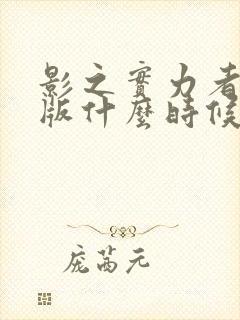 影之實力者
版什麼時候
庞茜元